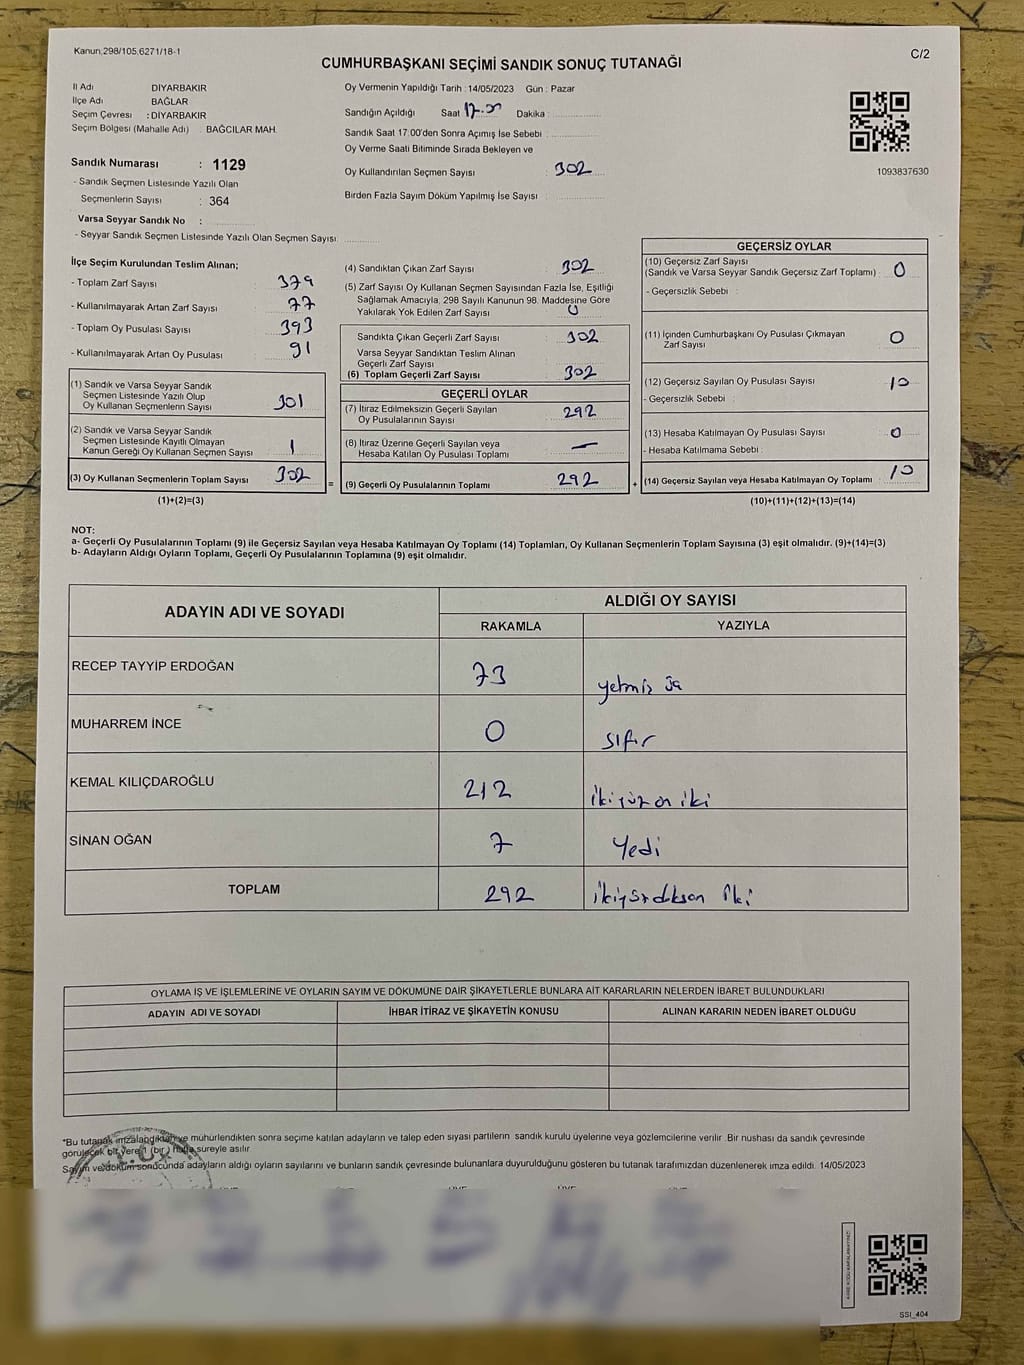 Kanun;298/105,6271/18-1
C/2
CUMHURBAŞKANI SEÇİMİ SANDIK SONUÇ TUTANAĞI
İl Adı DİYARBAKIR
İlçe Adı BAĞLAR
Seçim Çevresi : DİYARBAKIR
Seçim Bölgesi (Mahalle Adı) : BAĞCILAR MAH.
Sandık Numarası : 1129
- Sandık Seçmen Listesinde Yazılı Olan
Seçmenlerin Sayısı : 364
Varsa Seyyar Sandık No :
- Seyyar Sandık Seçmen Listesinde Yazılı Olan Seçmen Sayısı
Oy Vermenin Yapıldığı Tarih : 14/05/2023 Gün : Pazar
Sandığın Açıldığı Saat 17.00 Dakika :
Sandık Saat 17:00'den Sonra Açımış İse Sebebi :
Oy Verme Saati Bitiminde Sırada Bekleyen ve
Oy Kullandırılan Seçmen Sayısı : 302
Birden Fazla Sayım Döküm Yapılmış İse Sayısı :
1093837630
İlçe Seçim Kurulundan Teslim Alınan;
- Toplam Zarf Sayısı : 379
- Kullanılmayarak Artan Zarf Sayısı : 77
- Toplam Oy Pusulası Sayısı : 393
- Kullanılmayarak Artan Oy Pusulası : 91
(1) Sandık ve Varsa Seyyar Sandık
Seçmen Listesinde Yazılı Olup
Oy Kullanan Seçmenlerin Sayısı 301
(2) Sandık ve Varsa Seyyar Sandık
Seçmen Listesinde Kayıtlı Olmayan
Kanun Gereği Oy Kullanan Seçmen Sayısı 1
(3) Oy Kullanan Seçmenlerin Toplam Sayısı 302
(1)+(2)=(3)
(4) Sandıktan Çıkan Zarf Sayısı : 302
(5) Zarf Sayısı Oy Kullanan Seçmen Sayısından Fazla İse, Eşitliği
Sağlamak Amacıyla, 298 Sayılı Kanunun 98. Maddesine Göre
Yakılarak Yok Edilen Zarf Sayısı : 0
Sandıkta Çıkan Geçerli Zarf Sayısı : 302
Varsa Seyyar Sandıktan Teslim Alınan
Geçerli Zarf Sayısı
(6) Toplam Geçerli Zarf Sayısı : 302
GEÇERLİ OYLAR
(7) İtiraz Edilmeksizin Geçerli Sayılan
Oy Pusulalarının Sayısı : 292
(8) İtiraz Üzerine Geçerli Sayılan veya
Hesaba Katılan Oy Pusulası Toplamı : —
= (9) Geçerli Oy Pusulalarının Toplamı : 292
GEÇERSİZ OYLAR
(10) Geçersiz Zarf Sayısı
(Sandık ve Varsa Seyyar Sandık Geçersiz Zarf Toplamı) : 0
- Geçersizlik Sebebi :
(11) İçinden Cumhurbaşkanı Oy Pusulası Çıkmayan
Zarf Sayısı : 0
(12) Geçersiz Sayılan Oy Pusulası Sayısı : 10
- Geçersizlik Sebebi :
(13) Hesaba Katılmayan Oy Pusulası Sayısı : 0
- Hesaba Katılmama Sebebi :
+ (14) Geçersiz Sayılan veya Hesaba Katılmayan Oy Toplamı : 10
(10)+(11)+(12)+(13)=(14)
NOT:
a- Geçerli Oy Pusulalarının Toplamı (9) ile Geçersiz Sayılan veya Hesaba Katılmayan Oy Toplamı (14) Toplamları, Oy Kullanan Seçmenlerin Toplam Sayısına (3) eşit olmalıdır. (9)+(14)=(3)
b- Adayların Aldığı Oyların Toplamı, Geçerli Oy Pusulalarının Toplamına (9) eşit olmalıdır.
ADAYIN ADI VE SOYADI
ALDIĞI OY SAYISI
RAKAMLA YAZIYLA
RECEP TAYYİP ERDOĞAN 73 yetmiş üç
MUHARREM İNCE 0 sıfır
KEMAL KILIÇDAROĞLU 212 ikiyüz on iki
SİNAN OĞAN 7 Yedi
TOPLAM 292 ikiyüzdoksan iki
OYLAMA İŞ VE İŞLEMLERİNE VE OYLARIN SAYIM VE DÖKÜMÜNE DAİR ŞİKAYETLERLE BUNLARA AİT KARARLARIN NELERDEN İBARET BULUNDUKLARI
ADAYIN ADI VE SOYADI İHBAR İTİRAZ VE ŞİKAYETİN KONUSU ALINAN KARARIN NEDEN İBARET OLDUĞU
*Bu tutanak imzalandıktan ve mühürlendikten sonra seçime katılan adayların ve talep eden siyasi partilerin sandık kurulu üyelerine veya gözlemcilerine verilir. Bir nushası da sandık çevresinde
görülecek bir yere 1 (bir) hafta süreyle asılır
Sayım ve döküm sonucunda adayların aldığı oyların sayılarını ve bunların sandık çevresinde bulunanlara duyurulduğunu gösteren bu tutanak tarafımızdan düzenlenerek imza edildi. 14/05/2023
SSI_404